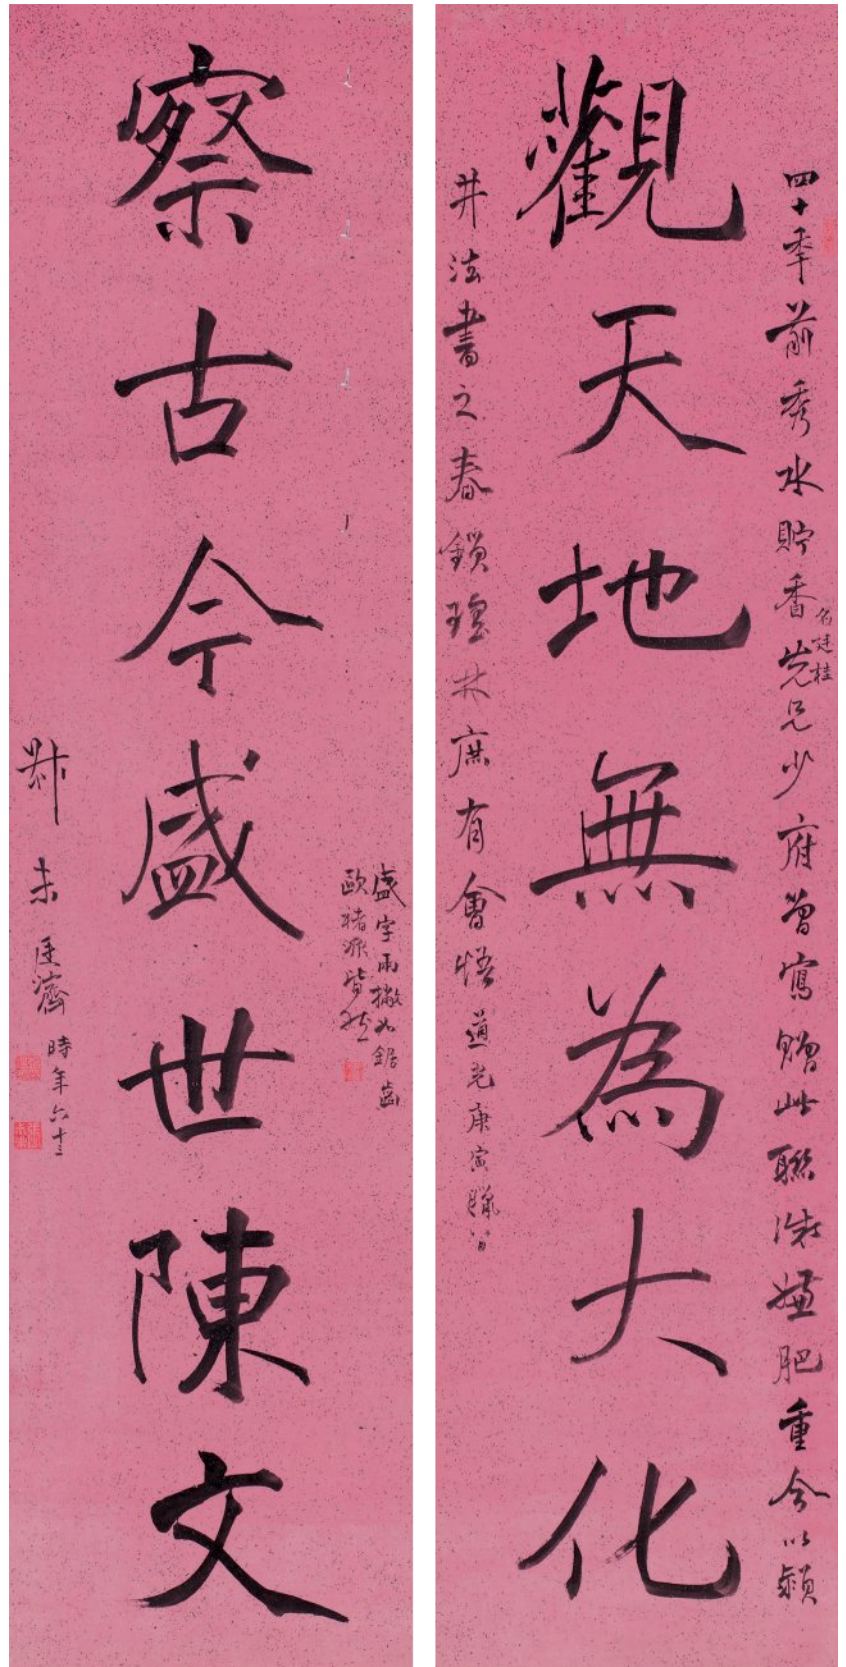 觀天地無為大化
四十季前秀水貯香先兄少府曾寫贈此聯微嫌肥重今以潁
名廷桂
井法書之春鎖瓊林庶有會悟道光庚寅臘八日
察古今盛世陳文
盛字兩撇如鋸齒
歐褚源皆然
叔未廷濟時年六十三